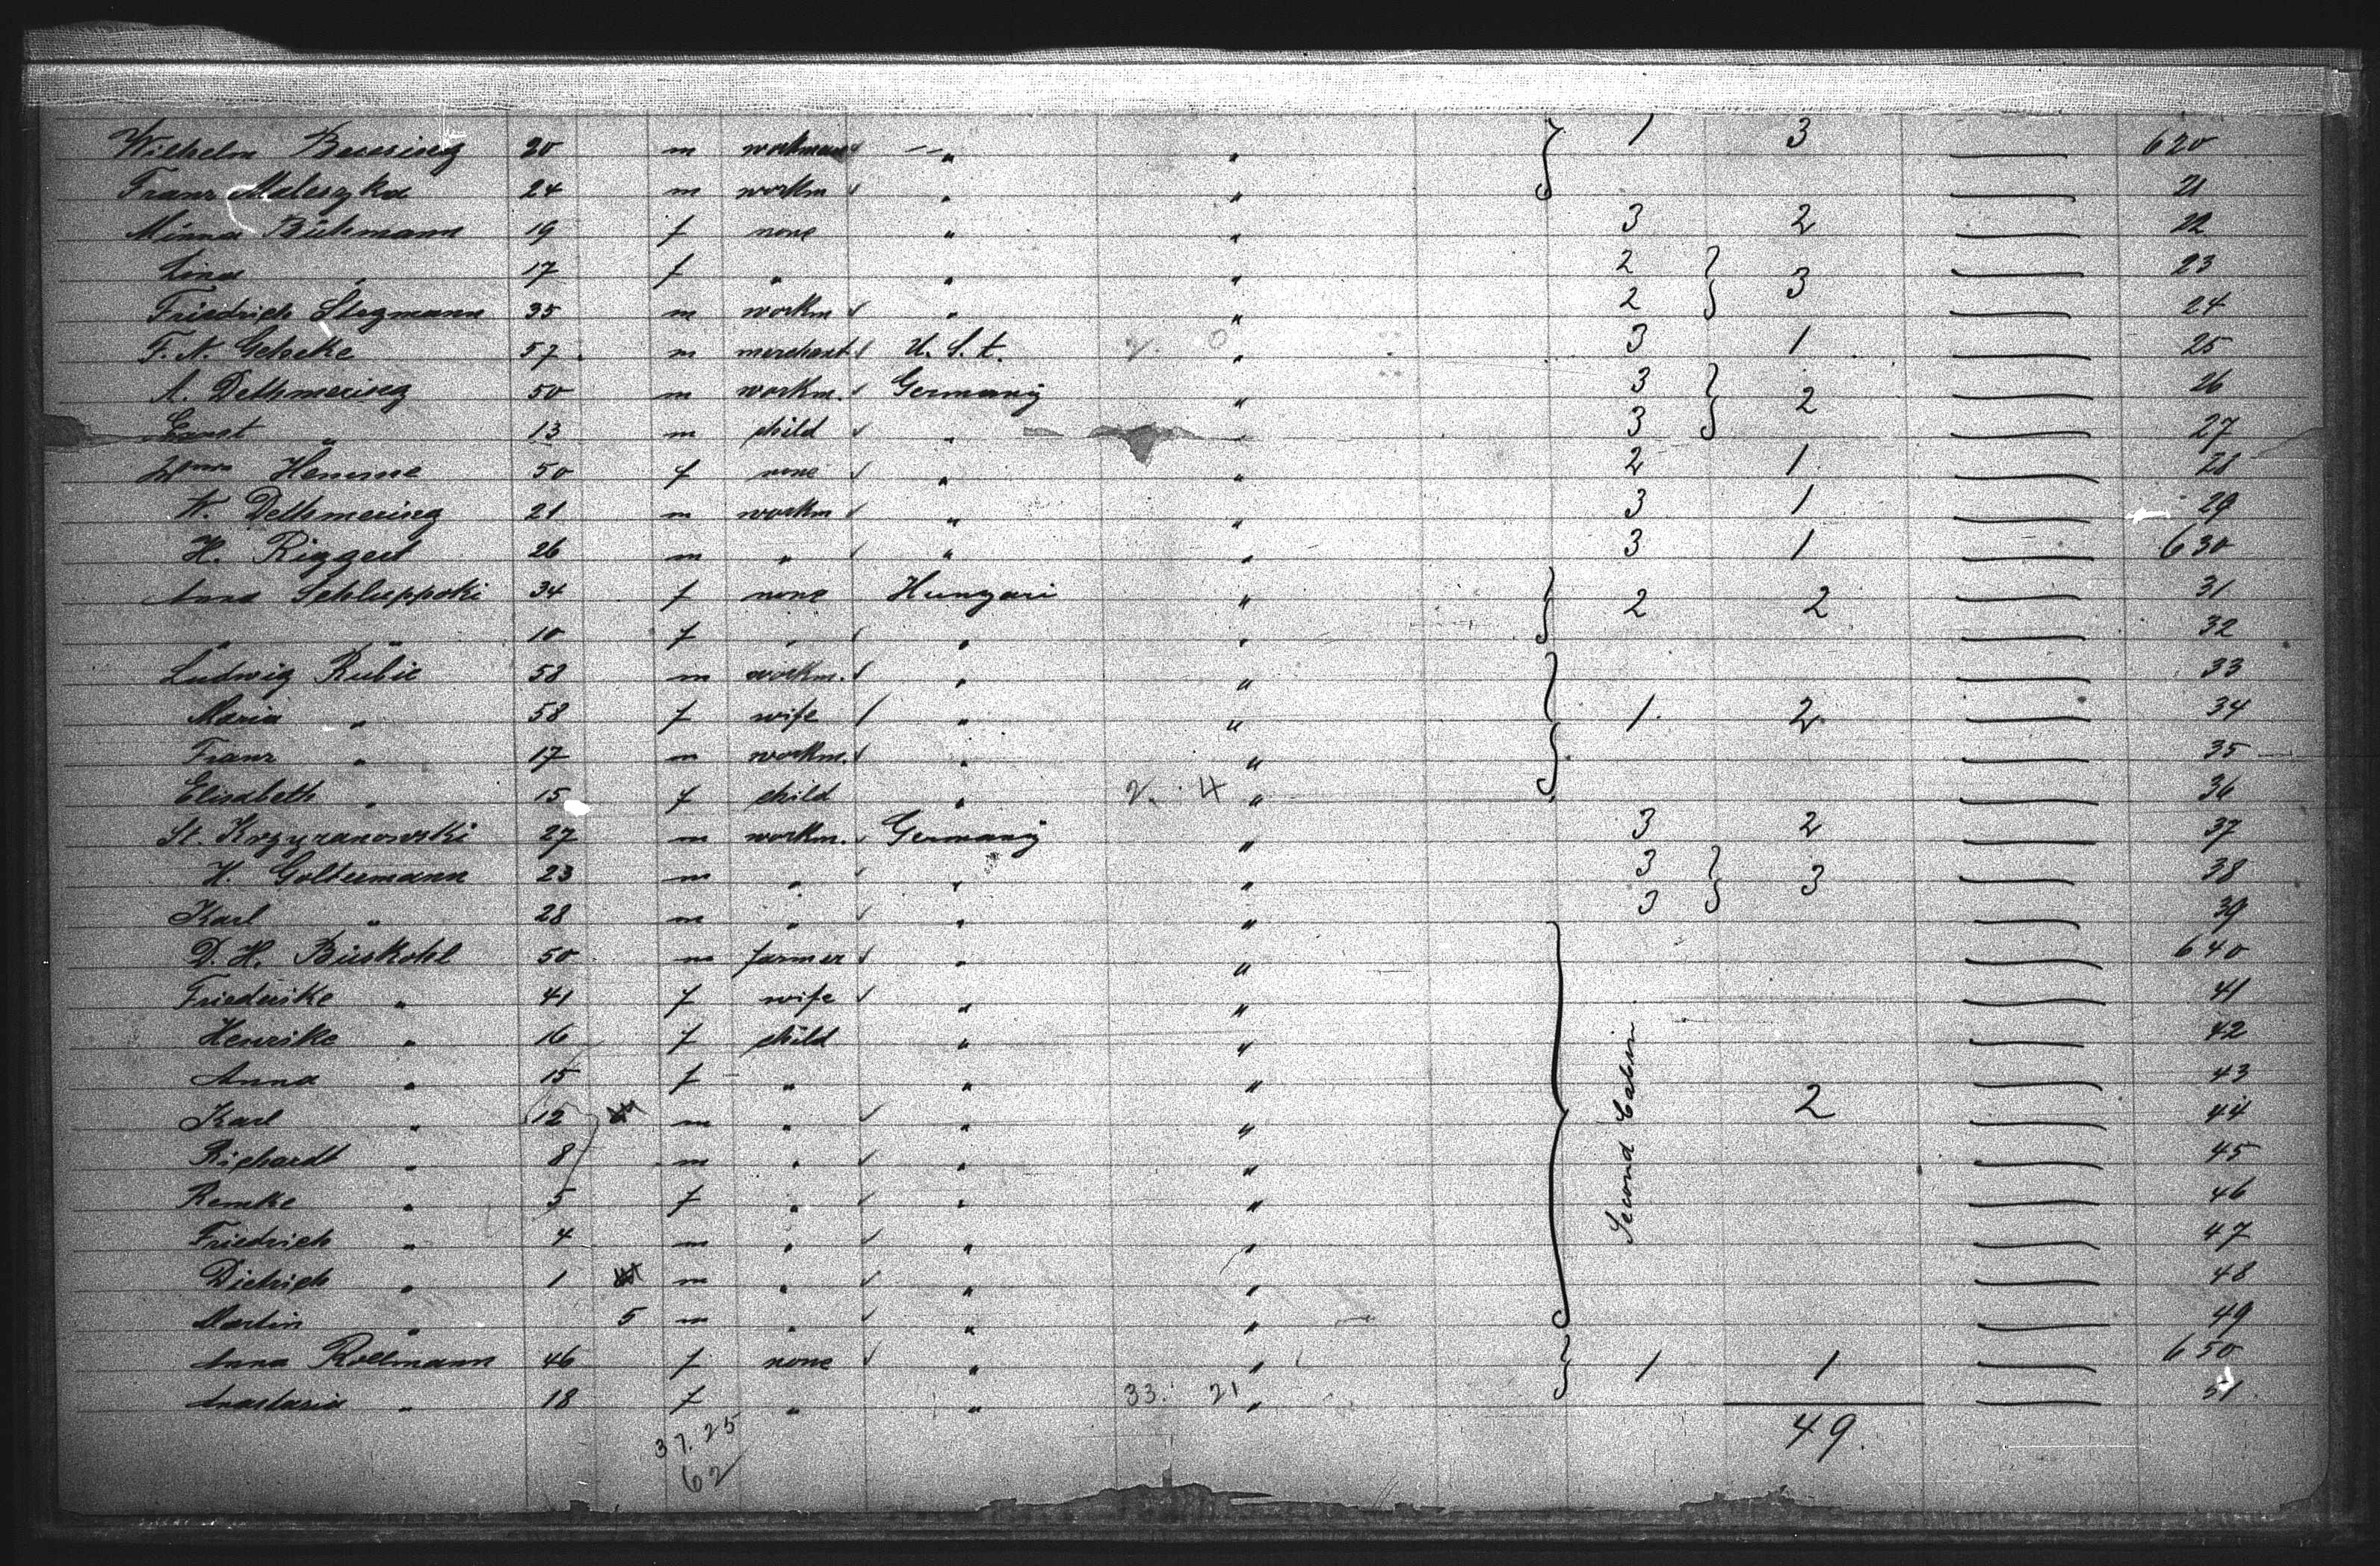 Wilhelm 20 m workman " " 1 3 620
Franz Maleszka 24 m workm " " 21
Minna Bühmann 19 f none " " 3 2 22
Lina " 17 f " " " 2 3 23
Friedrich Stegmann 35 m workm " " 2 24
F. N. Geheke 57 m merchant U. S. t. " 3 1 25
A. Dethmering 50 m workm. Germany " 3 2 26
Ernst " 13 m child " " 3 27
Hemme 50 f none " " 2 1 28
W. Dethmering 21 m workm " " 3 1 29
H. Riggert 26 m " " " 3 1 630
Anna Schluppoki 34 f none Hungari " 2 2 31
" " 10 f " " " 32
Ludwig Rubic 58 m workm. " " 33
Maria " 58 f wife " " 1 2 34
Franz " 17 m workm. " " 35
Elisabeth " 15 f child " 2. 4 " 36
St. Krzyzanowski 27 m workm. Germany " 3 2 37
H. Goltermann 23 m " " " 3 3 38
Karl " 28 m " " " 3 39
D. H. Büskohl 50 m farmer " " 640
Friederike " 41 f wife " " 41
Henrike " 16 f child " " 42
Anna " 15 f " " " 43
Karl " 12 m " " " Second Cabin 2 44
Richardt " 8 m " " " 45
Remke " 5 f " " " 46
Friedrich " 4 m " " " 47
Dietrich " 1 m " " " 48
Martin " 5 m " " " 49
Anna Rollmann 46 f none " " 1 1 650
Anastasia " 18 f " " 33. 21 " 51
37. 25 49.
62